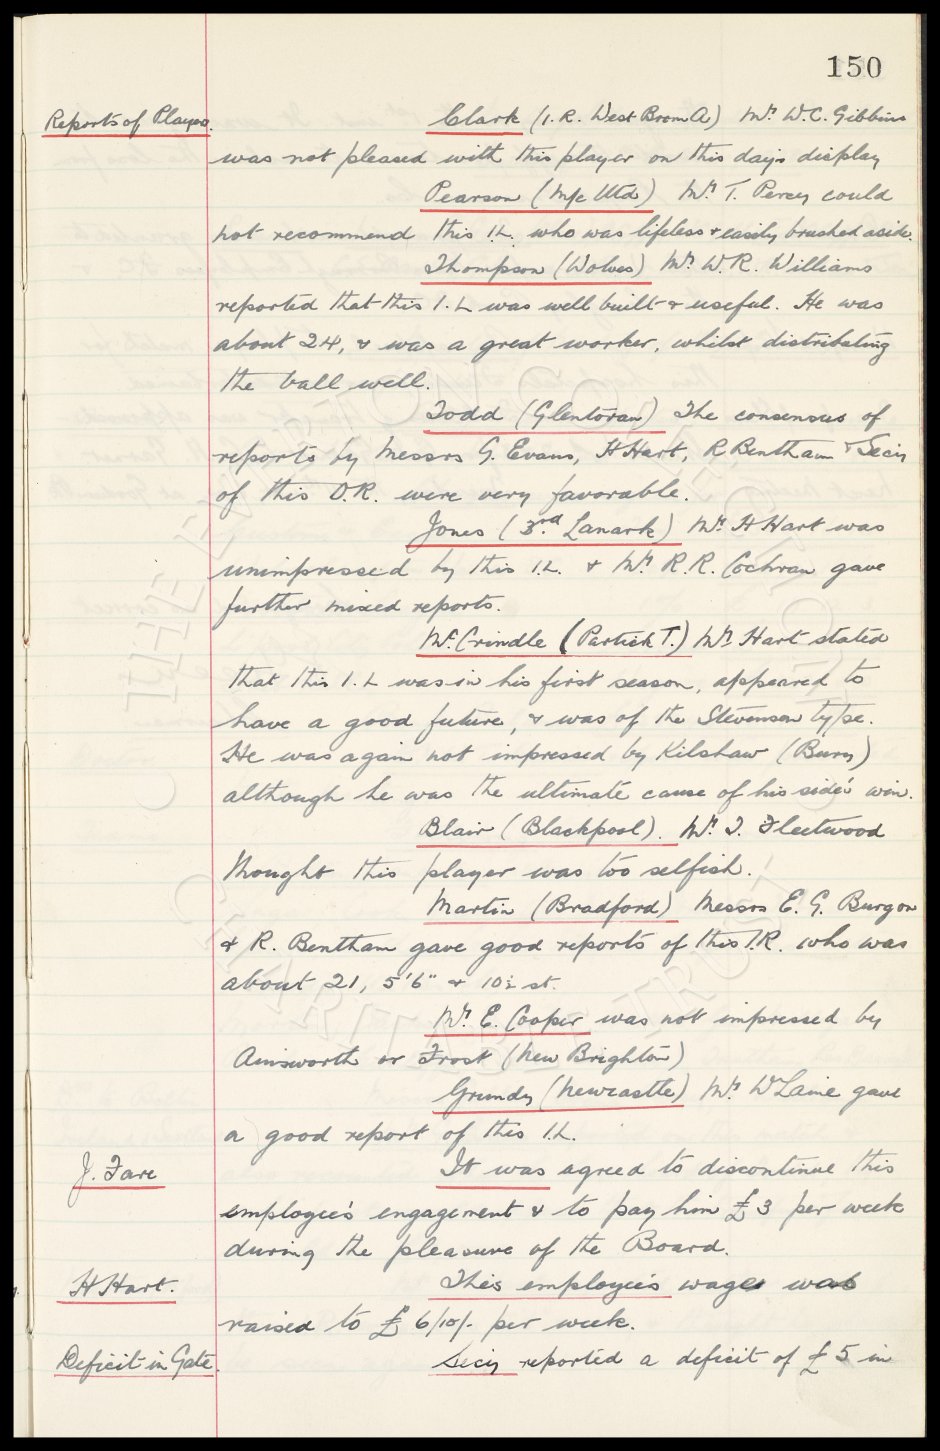 150
Reports of Players. Clark (I.R. West Brom A) Mr. W.C. Gibbins
was not pleased with this player on this day's display
Pearson (M/c Utd) Mr T. Percy could
not recommend this I.L. who was lifeless & easily brushed aside.
Thompson (Wolves) Mr W.R. Williams
reported that this I.L was well built & useful. He was
about 24, & was a great worker, whilst distributing
the ball well.
Todd (Glentoran) The consensus of
reports by Messrs G. Evans, H Hart, R Bentham & Secy
of this O.R. were very favorable.
Jones (3rd. Lanark) Mr H Hart was
unimpressed by this I.L. & Mr. R.R. Cochran gave
further mixed reports.
McCrindle (Partick T.) Mr Hart stated
that this I.L was in his first season, appeared to
have a good future, & was of the Stevenson type.
He was again not impressed by Kilshaw (Bury)
although he was the ultimate cause of his side's win.
Blair (Blackpool). Mr. J. Fleetwood
thought this player was too selfish.
Martin (Bradford) Messrs E.G. Burgon
& R. Bentham gave good reports of this I.R. who was
about 21, 5'6" & 10½ st.
Mr. E. Cooper was not impressed by
Ainsworth or Frost (New Brighton)
Grundy (Newcastle) Mr. gave
a good report of this I.L.
J. Fare It was agreed to discontinue this
employee's engagement & to pay him £3 per week
during the pleasure of the Board.
H Hart. This employee's wage was
raised to £6/10/- per week.
Deficit in Gate. Secy reported a deficit of £5 in